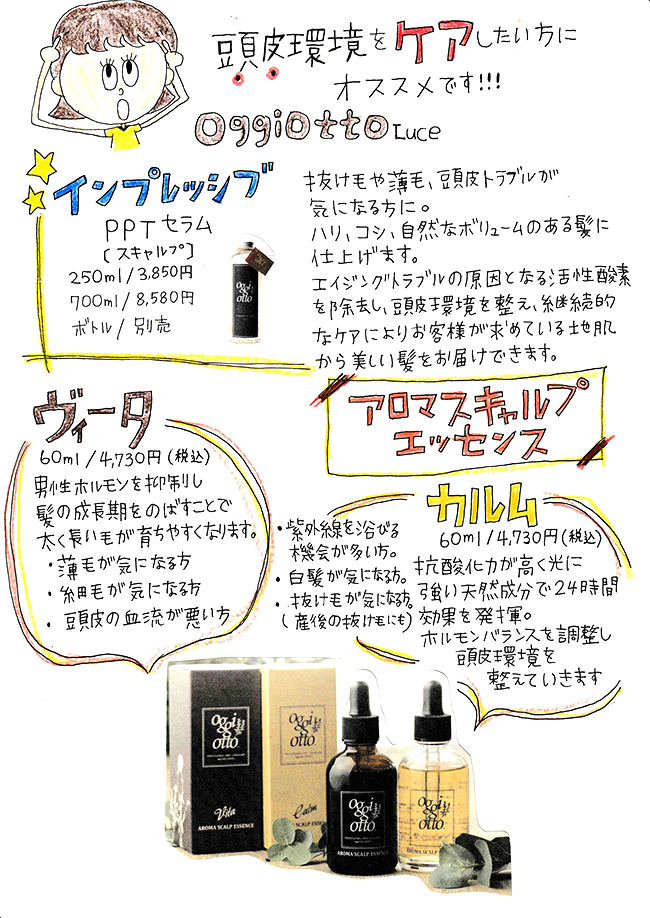 頭皮環境をケアしたい方に
オススメです!!!
oggiotto Luce
インプレッシブ
PPTセラム
[スキャルプ]
250ml/3,850円
700ml/8,580円
ボトル/別売
抜け毛や薄毛、頭皮トラブルが
気になる方に。
ハリ、コシ、自然なボリュームのある髪に
仕上げます。
エイジングトラブルの原因となる活性酸素
を除去し、頭皮環境を整え、継続的
なケアによりお客様が求めている地肌
から美しい髪をお届けできます。
アロマスキャルプ
エッセンス
ヴィータ
60ml/4,730円(税込)
男性ホルモンを抑制し
髪の成長期をのばすことで
太く長い毛が育ちやすくなります。
・薄毛が気になる方
・細毛が気になる方
・頭皮の血流が悪い方
カルム
60ml/4,730円(税込)
抗酸化力が高く光に
強い天然成分で24時間
効果を発揮。
ホルモンバランスを調整し
頭皮環境を
整えていきます
・紫外線を浴びる
機会が多い方。
・白髪が気になる方。
・抜け毛が気になる方。
(産後の抜け毛にも)
oggi
otto
Vita
AROMA SCALP ESSENCE
oggi
otto
Calm
SCALP ESSENCE
oggi
otto
AROMA SCALP ESSENCE
oggi
otto
AROMA SCALP